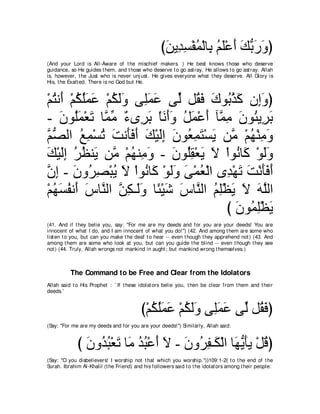 (وَرَبُّكَ أَعْلَمُ بِالْمُفْسِدِينَ)
(And your Lord is All-Aware of the mischief makers. ) He best knows those who deserve
guidance, so He guides them, and those who deserve to go astray, He allows to go astray. Allah
is, however, the Just who is never unjust. He gives everyone what they deserve. All Glory is
His, the Exalted. There is no God but He.
(وَإِن كَذَّبُوكَ فَقُل لِّى عَمَلِى وَلَكُمْ عَمَلُكُمْ أَنتُمْ
بَرِيئُونَ مِمَّآ أَعْمَلُ وَأَنَاْ بَرِىءٌ مِّمَّا تَعْمَلُونَ -
وَمِنْهُمْ مَّن يَسْتَمِعُونَ إِلَيْكَ أَفَأَنتَ تُسْمِعُ الصُّمَّ
وَلَوْ كَانُواْ لاَ يَعْقِلُونَ - وَمِنهُمْ مَّن يَنظُرُ إِلَيْكَ
أَفَأَنْتَ تَهْدِى الْعُمْىَ وَلَوْ كَانُواْ لاَ يُبْصِرُونَ - إِنَّ
اللَّهَ لاَ يَظْلِمُ النَّاسَ شَيْئًا وَلَـكِنَّ النَّاسَ أَنفُسَهُمْ
يَظْلِمُونَ )
(41. And if they belie you, say: "For me are my deeds and for you are your deeds! You are
innocent of what I do, and I am innocent of what you do!") (42. And among them are some who
listen to you, but can you make the deaf to hear -- even though they apprehend not) (43. And
among them are some who look at you, but can you guide the blind -- even though they see
not) (44. Truly, Allah wrongs not mankind in aught; but mankind wrong themselves.)
The Command to be Free and Clear from the Idolators
Allah said to His Prophet : `If these idolators belie you, then be clear from them and their
deeds.'
(فَقُل لِّى عَمَلِى وَلَكُمْ عَمَلُكُمْ)
(Say: "For me are my deeds and for you are your deeds!") Similarly, Allah said:
(قُلْ يأَيُّهَا الْكَـفِرُونَ - لاَ أَعْبُدُ مَا تَعْبُدُونَ )
(Say: "O you disbelievers! I worship not that which you worship.")(109:1-2) to the end of the
Surah. Ibrahim Al-Khalil (the Friend) and his followers said to the idolators among their people: